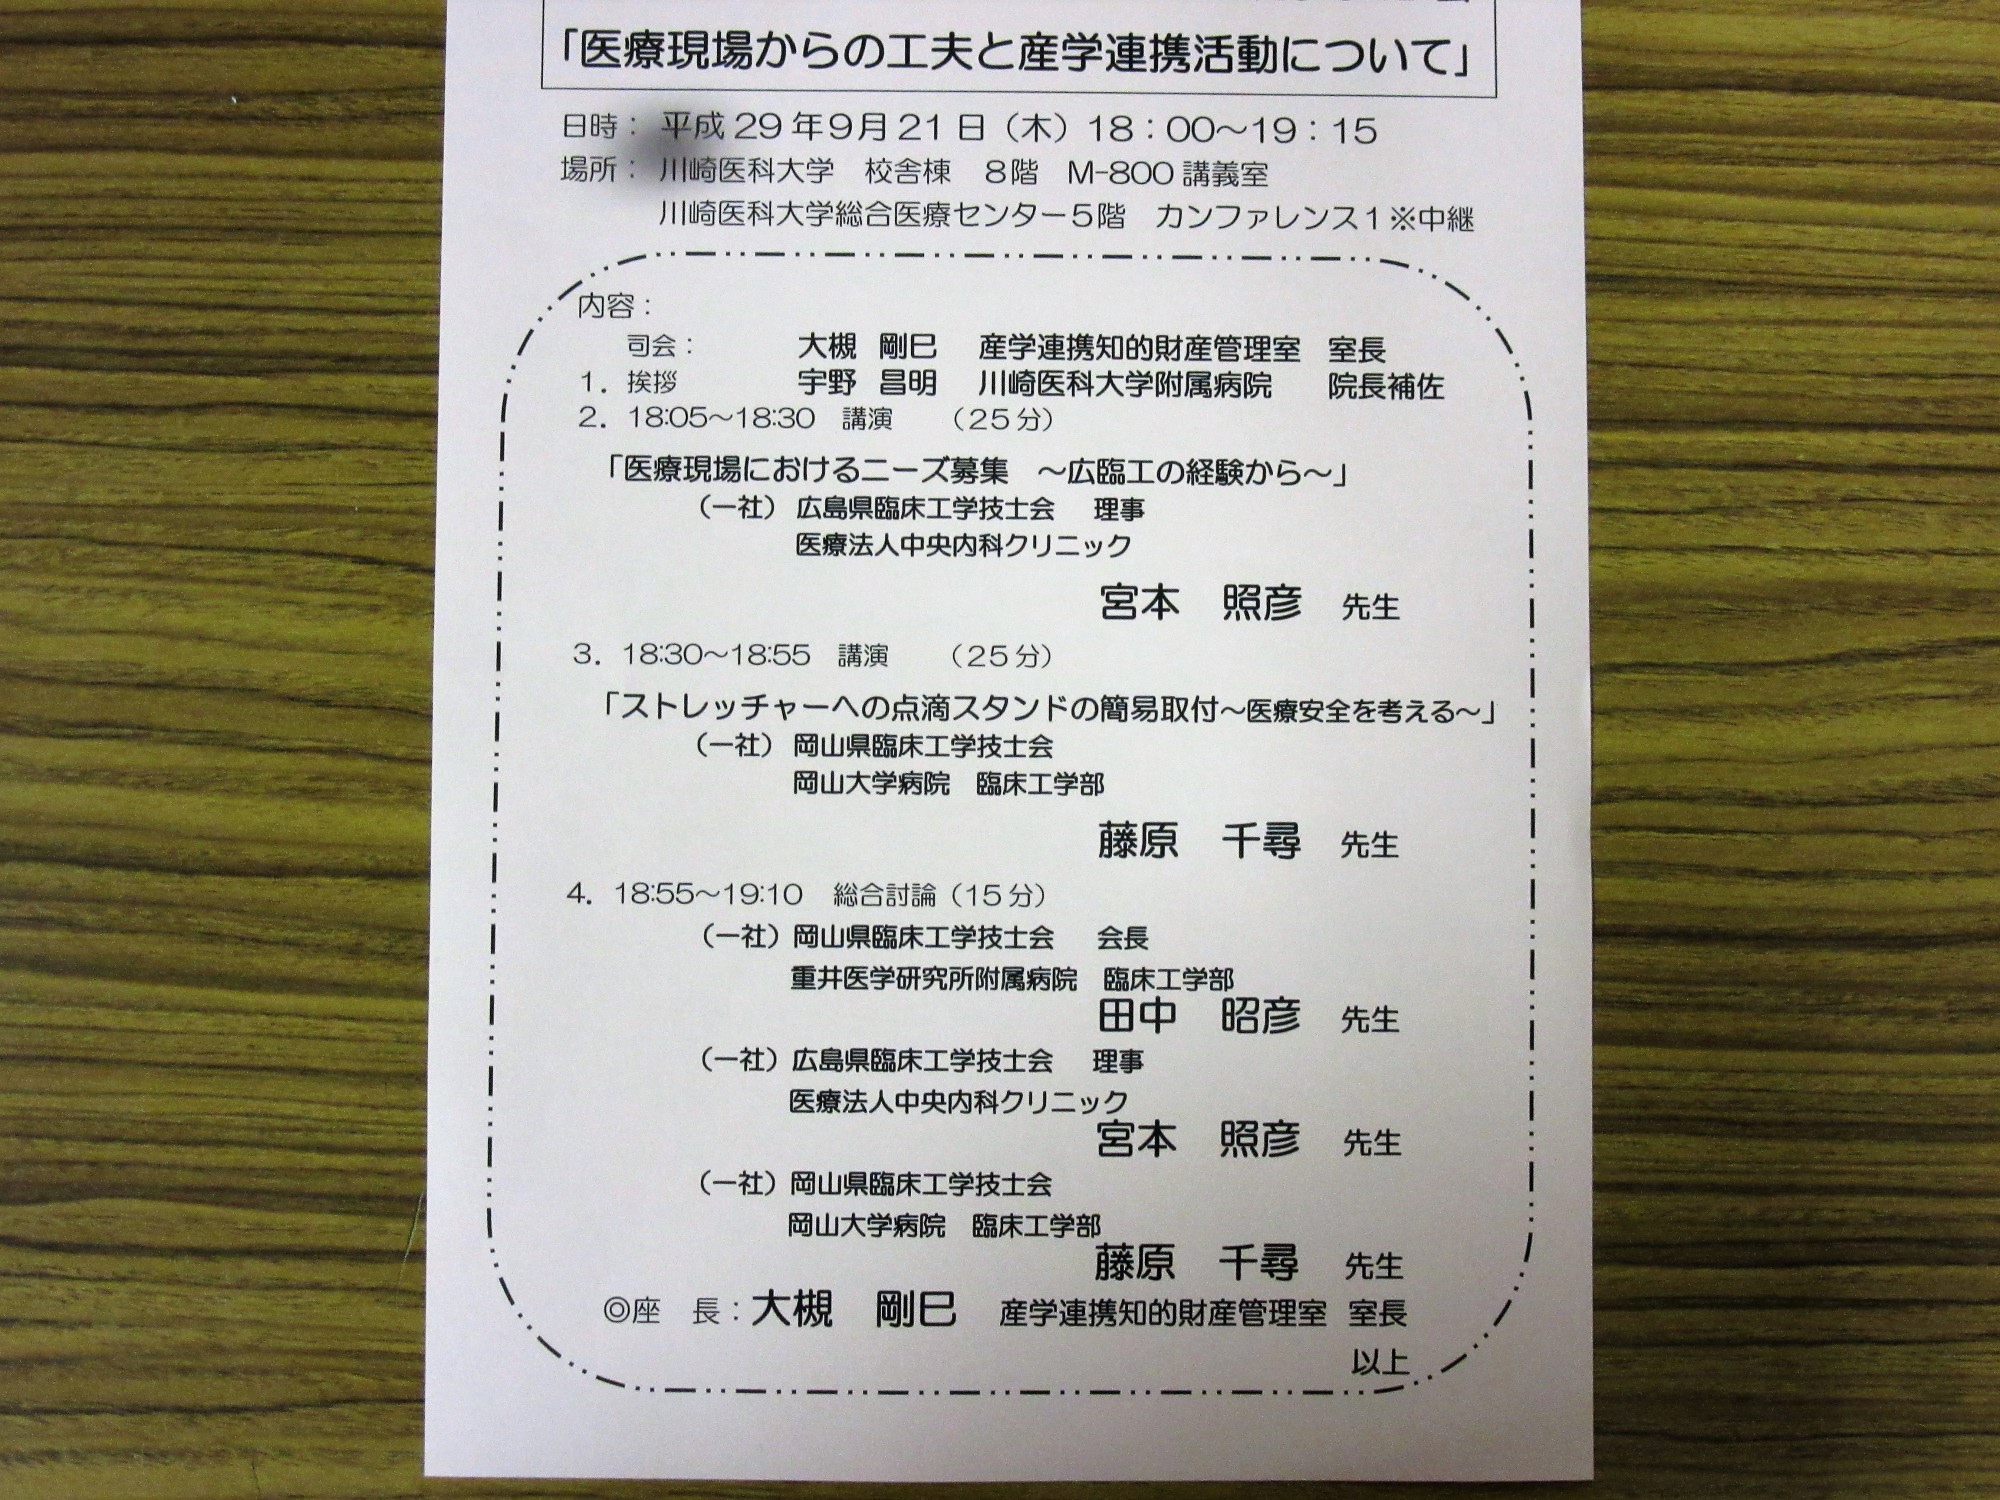 「医療現場からの工夫と産学連携活動について」
日時： 平成29年9月21日（木）18：00～19：15
場所： 川崎医科大学 校舎棟 8階 M-800講義室
川崎医科大学総合医療センター5階 カンファレンス1※中継
内容：
司会： 大槻 剛巳 産学連携知的財産管理室 室長
1．挨拶 宇野 昌明 川崎医科大学附属病院 院長補佐
2．18:05～18:30 講演 （25分）
「医療現場におけるニーズ募集 ～広臨工の経験から～」
（一社）広島県臨床工学技士会 理事
医療法人中央内科クリニック
宮本 照彦 先生
3．18:30～18:55 講演 （25分）
「ストレッチャーへの点滴スタンドの簡易取付～医療安全を考える～」
（一社）岡山県臨床工学技士会
岡山大学病院 臨床工学部
藤原 千尋 先生
4．18:55～19:10 総合討論（15分）
（一社）岡山県臨床工学技士会 会長
重井医学研究所附属病院 臨床工学部
田中 昭彦 先生
（一社）広島県臨床工学技士会 理事
医療法人中央内科クリニック
宮本 照彦 先生
（一社）岡山県臨床工学技士会
岡山大学病院 臨床工学部
藤原 千尋 先生
◎座 長：大槻 剛巳 産学連携知的財産管理室 室長
以上